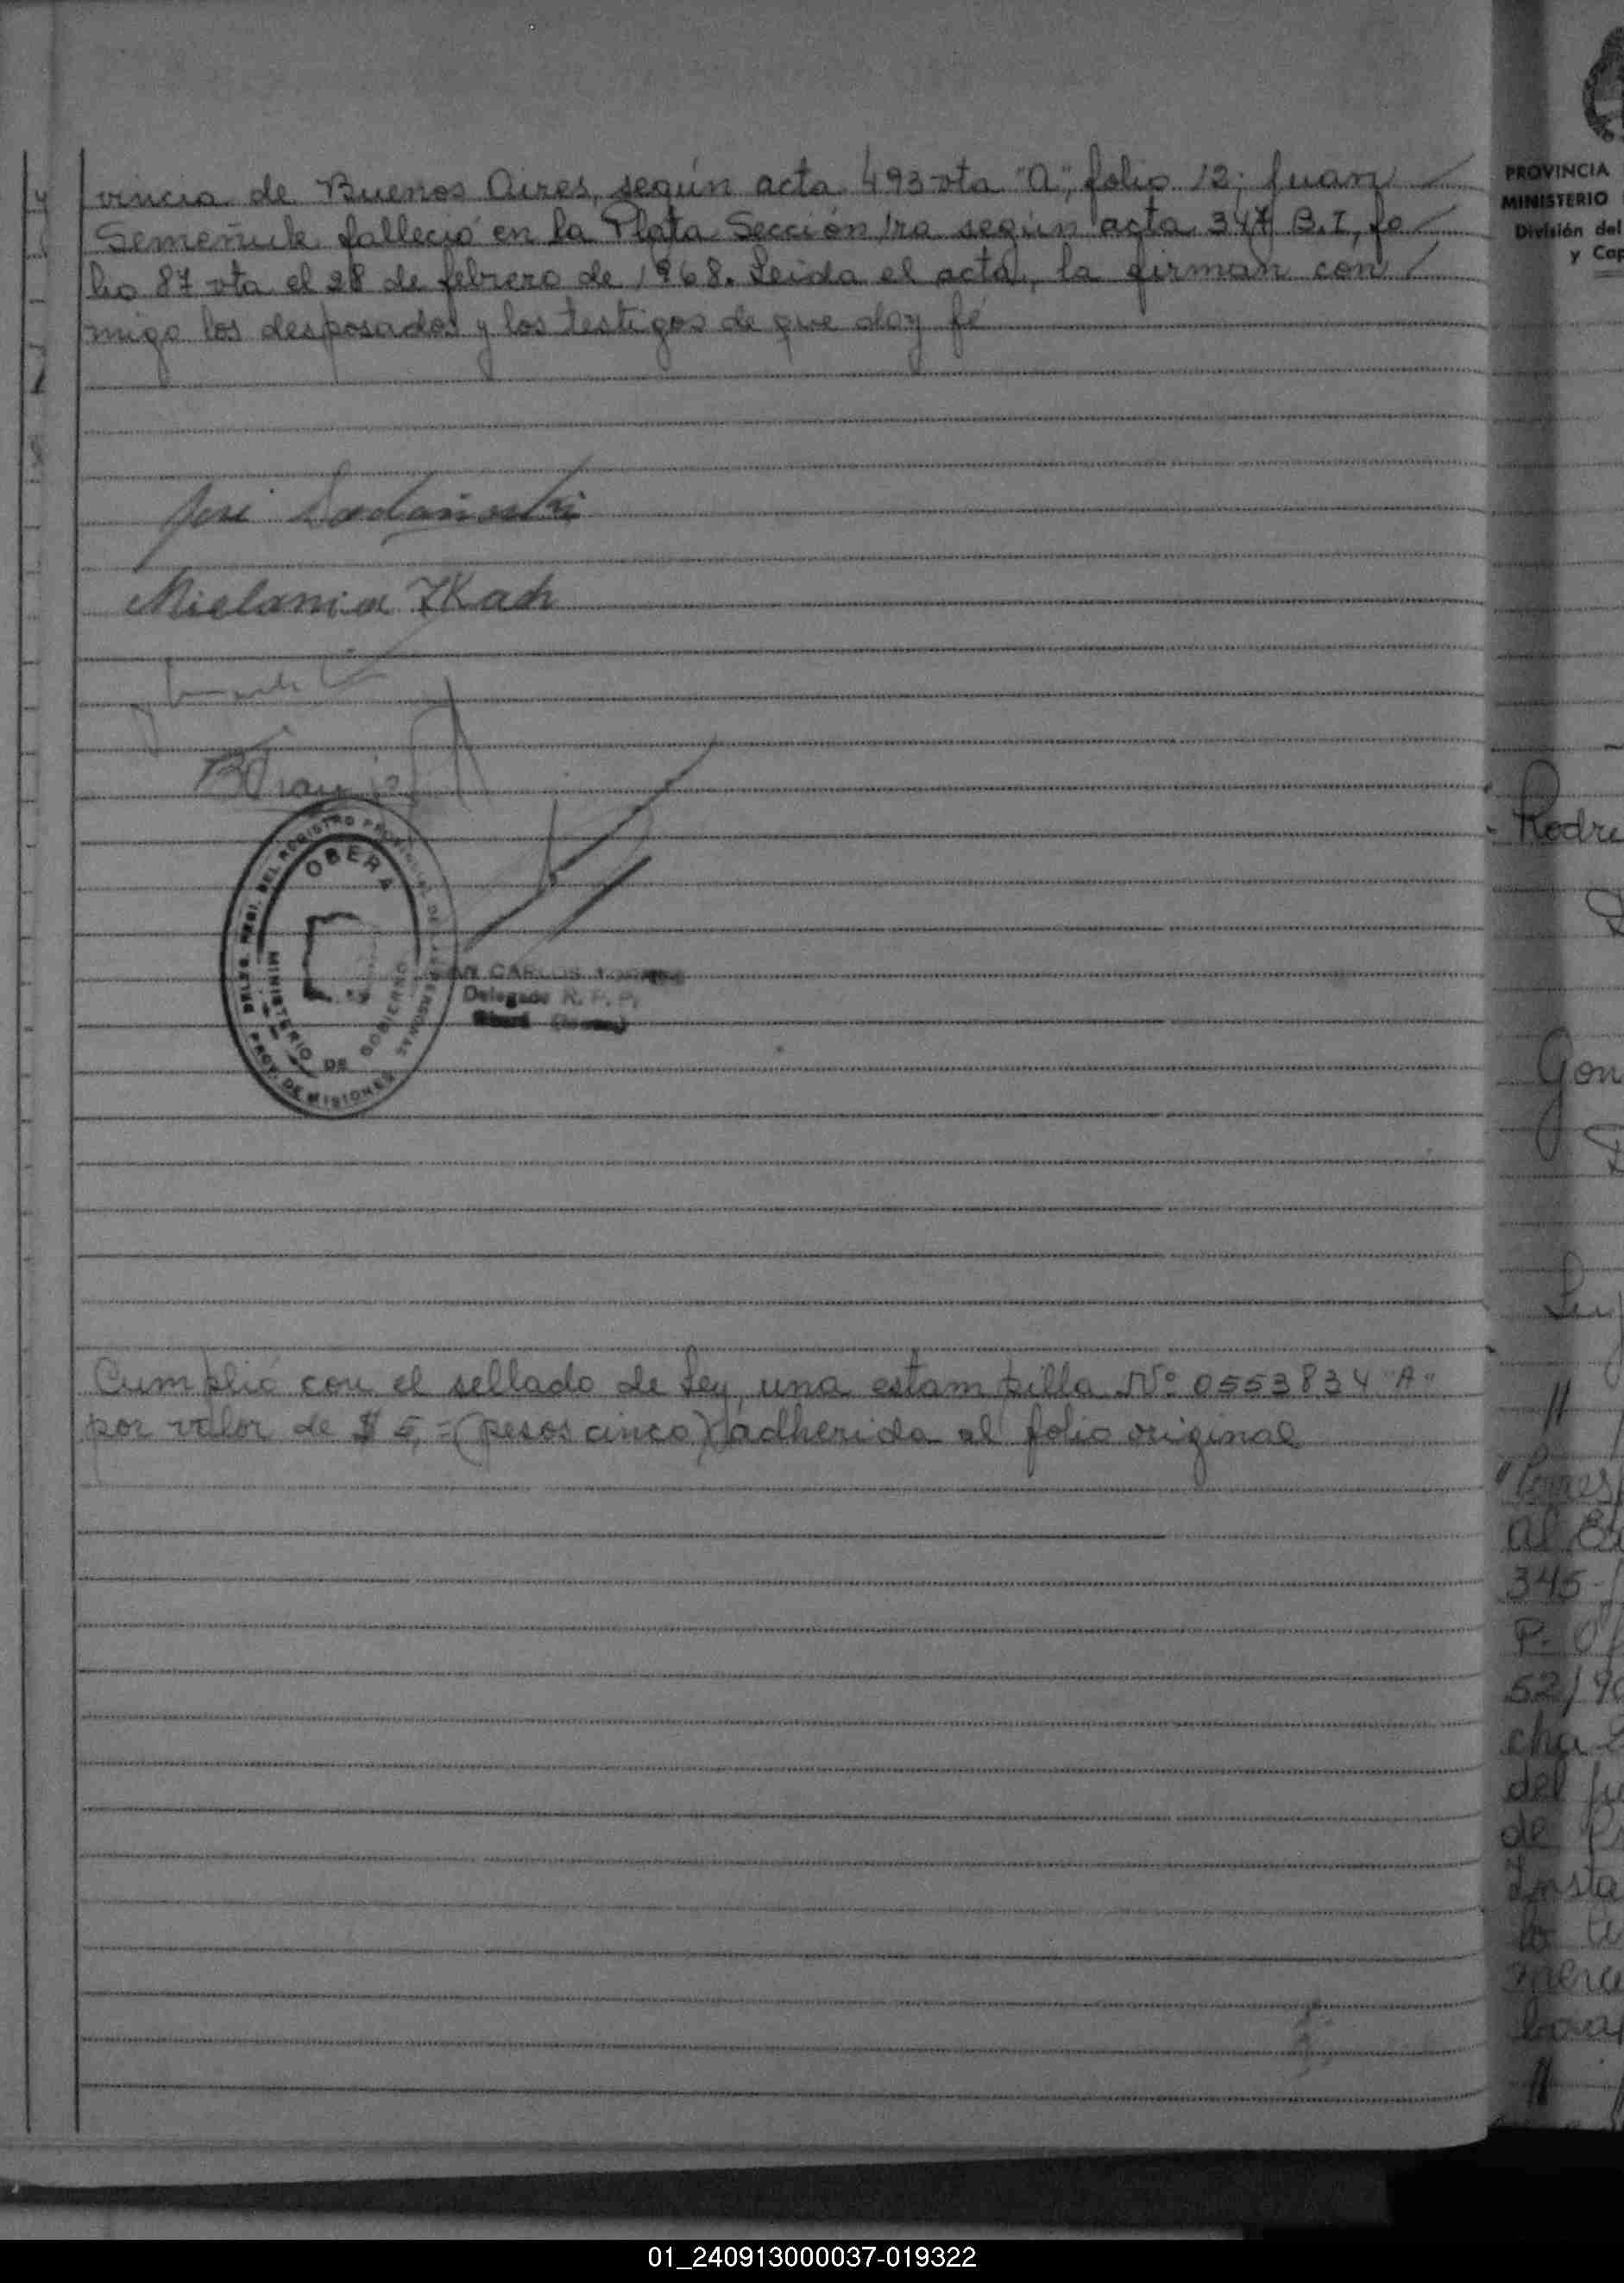 vincia de Buenos Aires, según acta 493 vta "A", folio 12; Juan
Semeñuk falleció en La Plata Sección 1ra según acta 347 B.I, fo
lio 87 vta el 28 de febrero de 1968. Leida el acta, la firman con
migo los desposados y los testigos de que doy fé
José
Mielania Tkach
DEL REGISTRO PROVINCIAL DE LAS PERSONAS
OBERA
MINISTERIO DE GOBIERNO
PROV. DE MISIONES
CARLOS
Delegado R. P. P.
Cumplió con el sellado de Ley, una estampilla Nº 0553834 "A"
por valor de $ 5,=(pesos cinco) adherida al folio original
PROVINCIA
MINISTERIO
División del
y Cap
Rodri
Gon
//
al
345
P.
52/
cha
del
de
Insta
lo
//
01_240913000037-019322